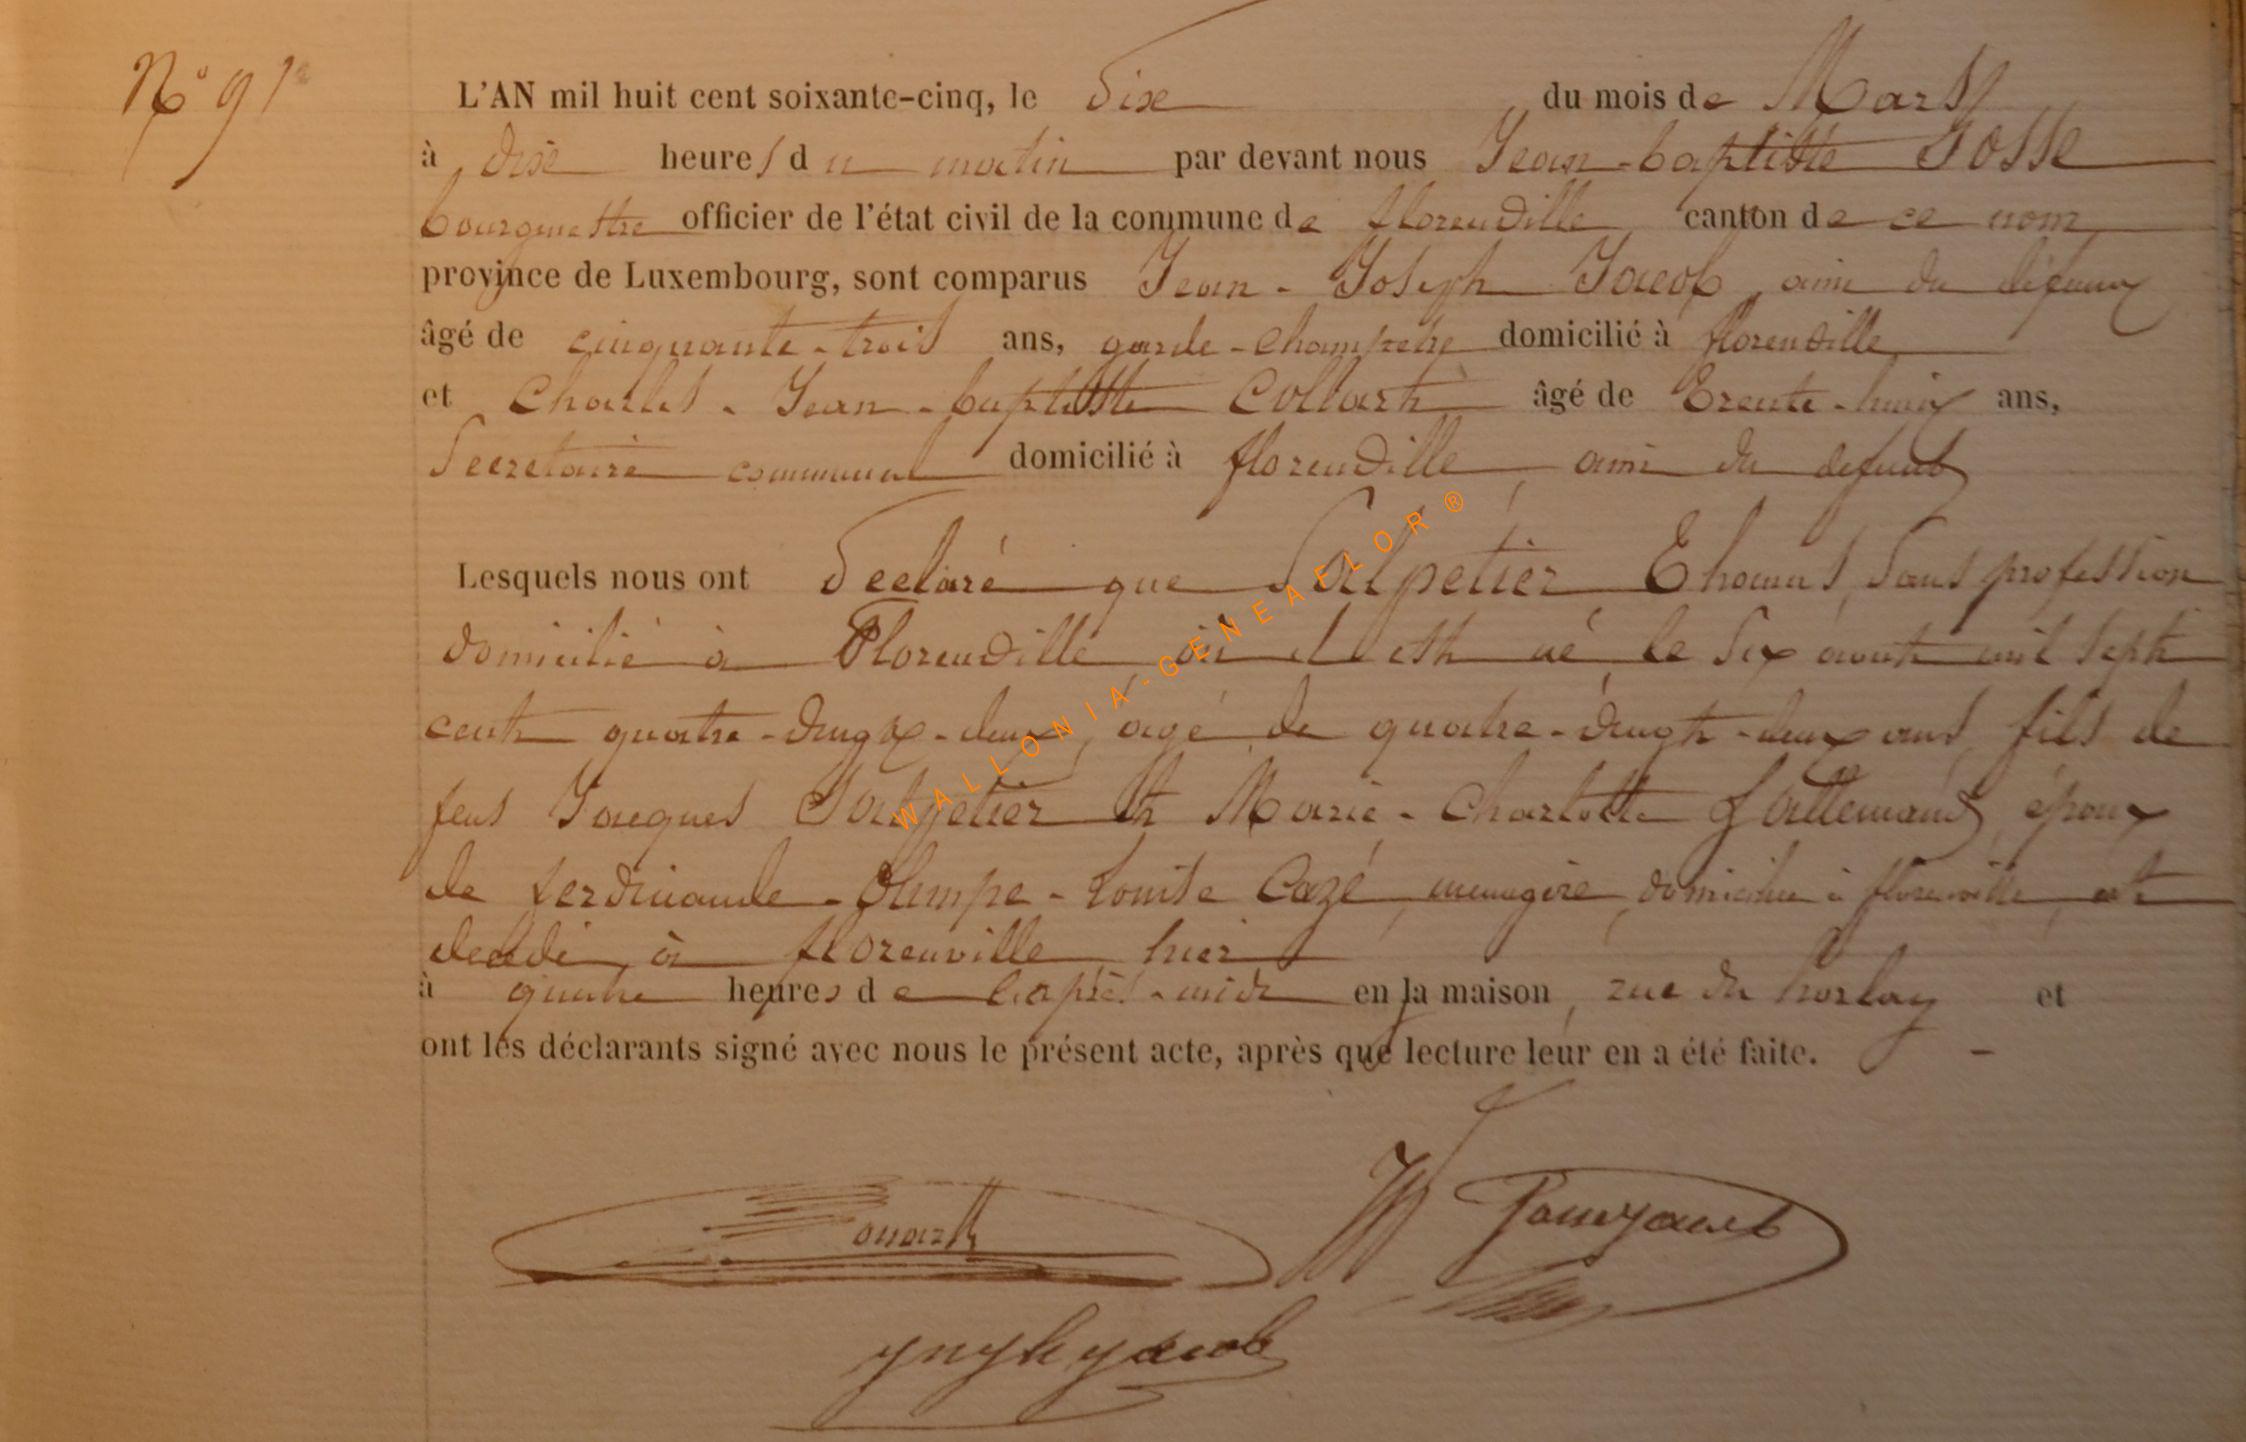 N° 9
L'AN mil huit cent soixante-cinq, le dix du mois de Mars
à dix heures du matin par devant nous Jean-baptiste Josse
bourgmestre officier de l'état civil de la commune de florenville canton de ce nom
province de Luxembourg, sont comparus Jean-Joseph Jacob, ami du défunt
âgé de cinquante-trois ans, garde-champêtre domicilié à florenville
et Charles-Jean-baptiste Collart âgé de Trente-huit ans,
Secretaire communal domicilié à florenville, ami du defunt
Lesquels nous ont declaré que Salpetier Thomas, sans profession
domicilié à Florenville, où il est né le six août mil sept
cent quatre-vingt-deux, agé de quatre-vingt-deux ans, fils de
feus Jacques Salpetier et Marie-Charlotte Lallemand, époux
de ferdinande-Olimpe-Louise Cazé, menagère, domiciliée à florenville, est
decedé à florenville hier
à quatre heures de l'après-midi en la maison, rue du et
ont les déclarants signé avec nous le présent acte, après que lecture leur en a été faite.
Jacob
WALLONIA-GENEAELOR®